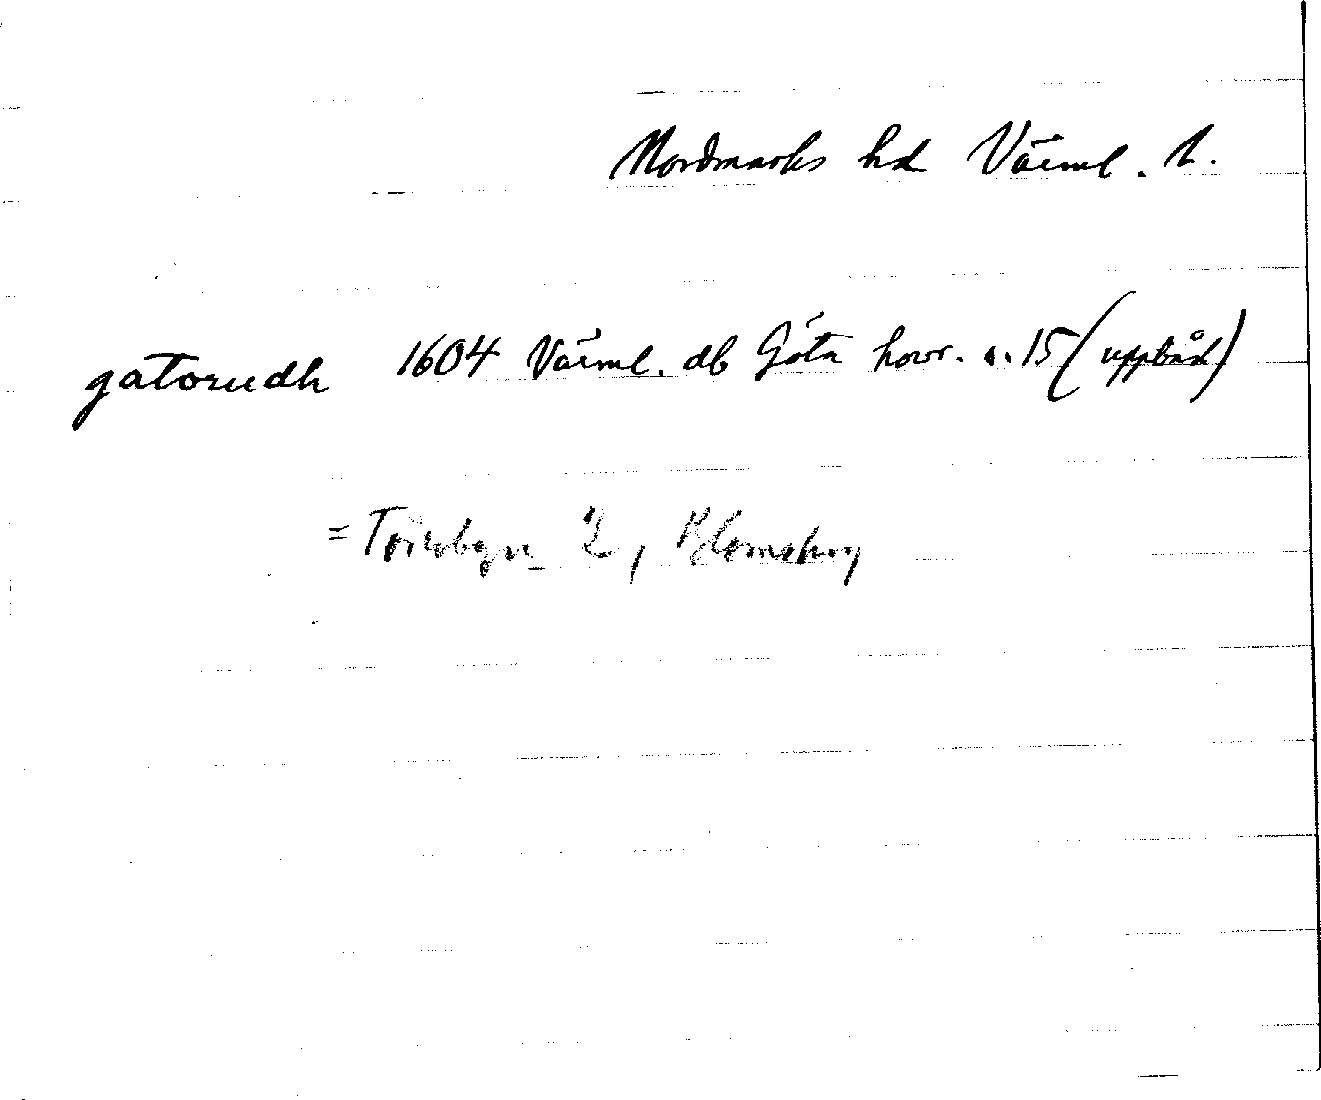 Nordmarks hd Värml. l.
gatorudh 1604 Värml. db Göta hovr. s. 15 (uppbåd)
= Torsbyn 2, Blomskog